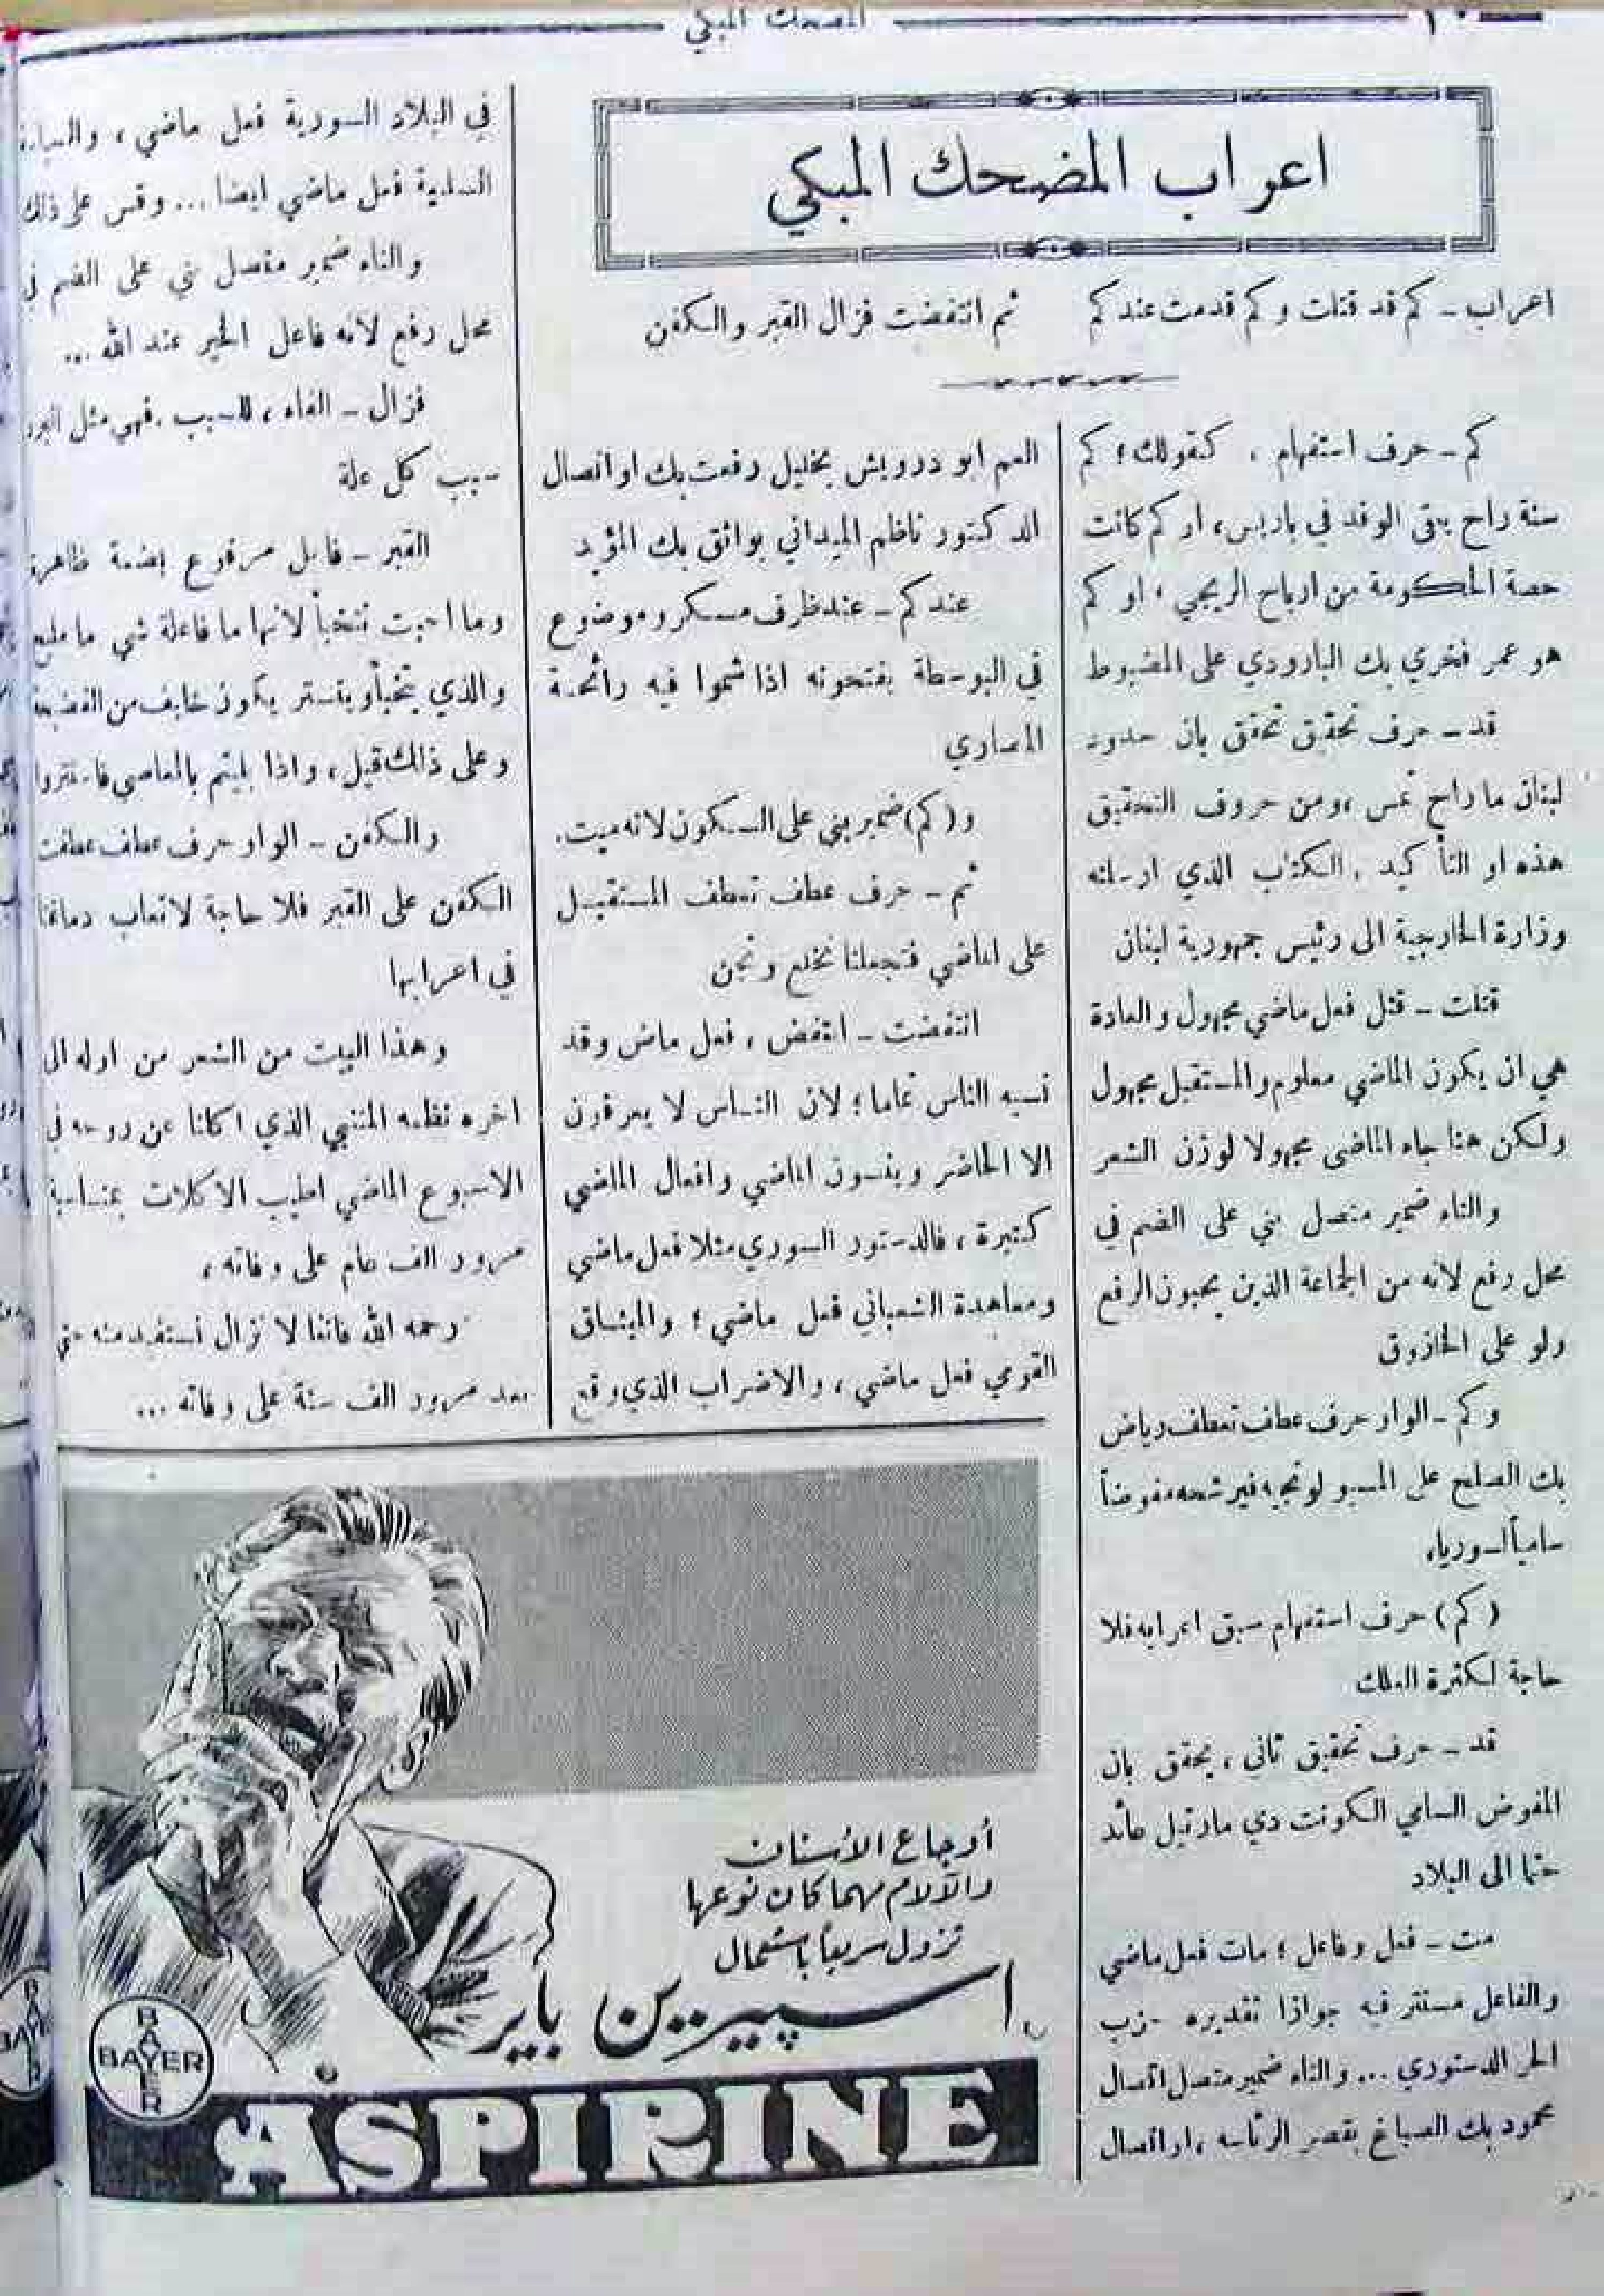 ١٠
المضحك المبكي
اعراب المضحك المبكي
اعراب ـ كم قد قتلت وكم قدمت عندكم ثم انتفضت فزال القبر والكفن
كم ـ حرف استفهام ، كقولك ؛ كم
سنة راح يبقى الوفد في باريس، او كم كانت
حصة الحكومة من ارباح الريجي ، او كم
هو عمر فخري بك البارودي على المضبوط
قد ـ حرف تحقيق تحقق بان حدود
لبنان ما راح تمس ،ومن حروف التحقيق
هذه او التأكيد ، الكتاب الذي ارسلته
وزارة الخارجية الى رئيس جمهورية لبنان
قتلت ـ قتل فعل ماضي مجهول والعادة
هي ان يكون الماضي معلوم والمستقبل مجهول
ولكن هنا جاء الماضي مجهولا لوزن الشعر
والتاء ضمير متصل بني على الضم في
محل رفع لانه من الجماعة الذين يحبون الرفع
ولو على الخازوق
وكم ـ الواو حرف عطف تعطف رياض
بك الصلح على المسيو لونجيه فيرشحه مفوضاً
سامياً لسوريا،
(كم) حرف استفهام سبق اعرابه فلا
حاجة لكثرة العلك
قد ـ حرف تحقيق ثاني ، يحقق بان
المفوض السامي الكونت دي مارتيل عائد
حتما الى البلاد
مت ـ فعل وفاعل ؛ مات فعل ماضي
والفاعل مستتر فيه جوازا تقديره حزب
الحر الدستوري ... والتاء ضمير متصل اتصال
محمود بك الصباغ بقصر الرئاسه ،او اتصال
العم ابو درويش بخليل رفعت بك او اتصال
الدكتور ناظم الميداني بواثق بك المؤيد
عندكم ـ عند ظرف مسكر وموضوع
في البوسطة يفتحونه اذا شموا فيه رائحة
المصاري
و(كم) ضمير بني على السكون لانه ميت.
ثم ـ حرف عطف تعطف المستقبل
على الماضي فتجعلنا نخلع ونجن
انتفضت ـ انتفض ، فعل ماض وقد
نسيه الناس تماما ؛ لان الناس لا يعرفون
الا الحاضر وينسون الماضي وافعال الماضي
كثيرة ، فالدستور السوري مثلا فعل ماضي
ومعاهدة الشعباني فعل ماضي ؛ والميثاق
القومي فعل ماضي ، والاضراب الذي وقع
في البلاد السورية فعل ماضي ،
السلبية فعل ماضي ايضا ... وقس على ذلك
والتاء ضمير متصل بني على الضم في
محل رفع لانه فاعل الخير عند الله ...
فزال ـ الفاء ، للسبب .فهي مثل
سبب كل علة
القبر ـ فاعل مرفوع بضمة ظاهرة
وما احبت تتخبأ لانها ما فاعلة شي ما مليح
والذي يتخبأ ويتستر يكون خايف من الفضيحة
وعلى ذلك قيل ، واذا بليتم بالمعاصي فاستتروا
والكفن ـ الواو حرف عطف عطفت
الكفن على القبر فلا حاجة لاتعاب دماغنا
في اعرابها
وهذا البيت من الشعر من اوله الى
اخره نظمه المتنبي الذي اكلنا عن روحه في
الاسبوع الماضي اطيب الاكلات بمناسبة
مرور الف عام على وفاته ،
رحمه الله فاننا لا نزال نستفيد منه حتى
بعد مرور الف سنة على وفاته ...
أوجاع الأسنان
والآلام مهما كان نوعها
تزول سريعاً باستعمال
اسبيرين باير
BAYER
BAYER
ASPIRINE